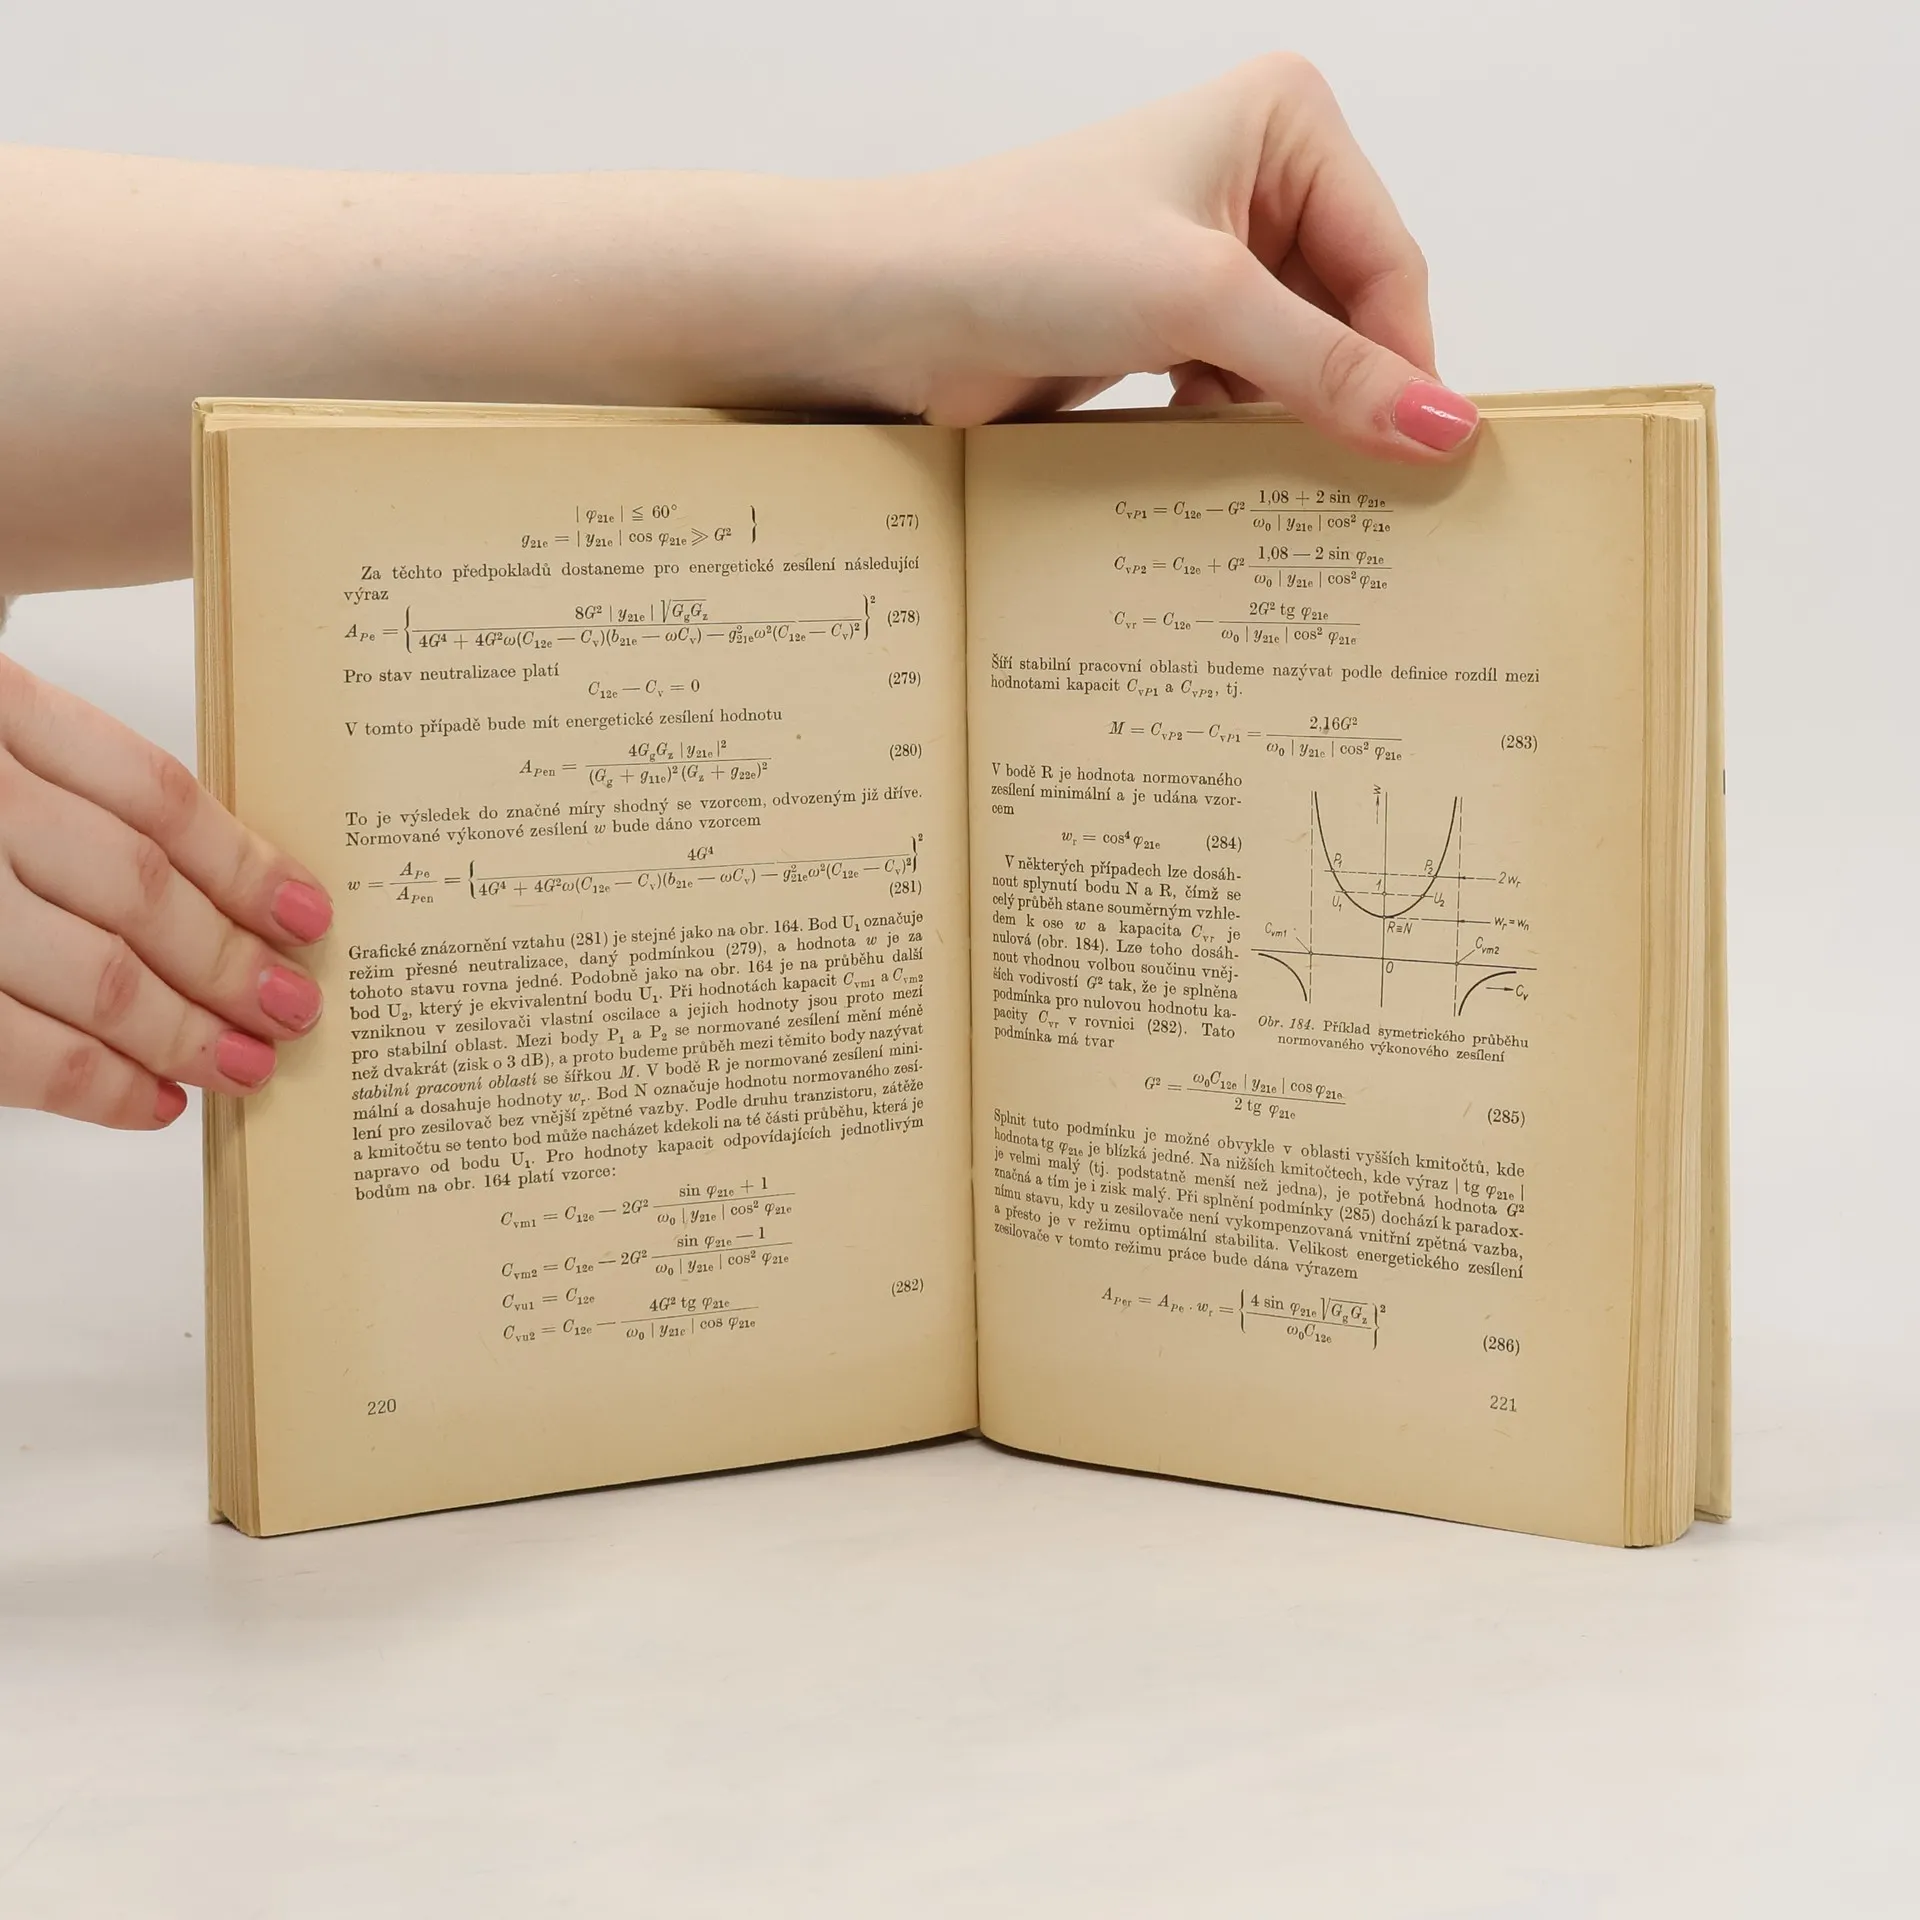 | φ₂₁ₑ | ≦ 60°
g₂₁ₑ = | y₂₁ₑ | cos φ₂₁ₑ ≫ G² } (277)
Za těchto předpokladů dostaneme pro energetické zesílení následující
výraz
A_Pe = { 8G² | y₂₁ₑ | √(G_g G_z) / (4G⁴ + 4G²ω(C₁₂ₑ — C_v)(b₂₁ₑ — ωC_v) — g²₂₁ₑω²(C₁₂ₑ — C_v)²) }² (278)
Pro stav neutralizace platí
C₁₂ₑ — C_v = 0 (279)
V tomto případě bude mít energetické zesílení hodnotu
A_Pen = 4G_g G_z | y₂₁ₑ |² / ((G_g + g₁₁ₑ)² (G_z + g₂₂ₑ)²) (280)
To je výsledek do značné míry shodný se vzorcem, odvozeným již dříve.
Normované výkonové zesílení w bude dáno vzorcem
w = A_Pe / A_Pen = { 4G⁴ / (4G⁴ + 4G²ω(C₁₂ₑ — C_v)(b₂₁ₑ — ωC_v) — g²₂₁ₑω²(C₁₂ₑ — C_v)²) }²
(281)
Grafické znázornění vztahu (281) je stejné jako na obr. 164. Bod U₁ označuje
režim přesné neutralizace, daný podmínkou (279), a hodnota w je za
tohoto stavu rovna jedné. Podobně jako na obr. 164 je na průběhu další
bod U₂, který je ekvivalentní bodu U₁. Při hodnotách kapacit C_vm1 a C_vm2
vzniknou v zesilovači vlastní oscilace a jejich hodnoty jsou proto mezí
pro stabilní oblast. Mezi body P₁ a P₂ se normované zesílení mění méně
než dvakrát (zisk o 3 dB), a proto budeme průběh mezi těmito body nazývat
stabilní pracovní oblastí se šířkou M. V bodě R je normované zesílení mini-
mální a dosahuje hodnoty w_r. Bod N označuje hodnotu normovaného zesí-
lení pro zesilovač bez vnější zpětné vazby. Podle druhu tranzistoru, zátěže
a kmitočtu se tento bod může nacházet kdekoli na té části průběhu, která je
napravo od bodu U₁. Pro hodnoty kapacit odpovídajících jednotlivým
bodům na obr. 164 platí vzorce:
C_vm1 = C₁₂ₑ — 2G² (sin φ₂₁ₑ + 1) / (ω₀ | y₂₁ₑ | cos² φ₂₁ₑ)
C_vm2 = C₁₂ₑ — 2G² (sin φ₂₁ₑ — 1) / (ω₀ | y₂₁ₑ | cos² φ₂₁ₑ)
C_vu1 = C₁₂ₑ (282)
C_vu2 = C₁₂ₑ — 4G² tg φ₂₁ₑ / (ω₀ | y₂₁ₑ | cos φ₂₁ₑ)
220
C_vP1 = C₁₂ₑ — G² (1,08 + 2 sin φ₂₁ₑ) / (ω₀ | y₂₁ₑ | cos² φ₂₁ₑ)
C_vP2 = C₁₂ₑ + G² (1,08 — 2 sin φ₂₁ₑ) / (ω₀ | y₂₁ₑ | cos² φ₂₁ₑ)
C_vr = C₁₂ₑ — 2G² tg φ₂₁ₑ / (ω₀ | y₂₁ₑ | cos² φ₂₁ₑ)
Šíří stabilní pracovní oblasti budeme nazývat podle definice rozdíl mezi
hodnotami kapacit C_vP1 a C_vP2, tj.
M = C_vP2 — C_vP1 = 2,16G² / (ω₀ | y₂₁ₑ | cos² φ₂₁ₑ) (283)
V bodě R je hodnota normovaného
zesílení minimální a je udána vzor-
cem
w_r = cos⁴ φ₂₁ₑ (284)
V některých případech lze dosáh-
nout splynutí bodu N a R, čímž se
celý průběh stane souměrným vzhle-
dem k ose w a kapacita C_vr je
nulová (obr. 184). Lze toho dosáh-
nout vhodnou volbou součinu vněj-
ších vodivostí G² tak, že je splněna
podmínka pro nulovou hodnotu ka-
pacity C_vr v rovnici (282). Tato
podmínka má tvar
w
P₁ P₂ 2w_r
1
U₁ U₂
R≡N w_r = w_n
C_vm1 C_vm2
0 C_v
Obr. 184. Příklad symetrického průběhu
normovaného výkonového zesílení
G² = ω₀C₁₂ₑ | y₂₁ₑ | cos φ₂₁ₑ / (2 tg φ₂₁ₑ) (285)
Splnit tuto podmínku je možné obvykle v oblasti vyšších kmitočtů, kde
hodnota tg φ₂₁ₑ je blízká jedné. Na nižších kmitočtech, kde výraz | tg φ₂₁ₑ |
je velmi malý (tj. podstatně menší než jedna), je potřebná hodnota G²
značná a tím je i zisk malý. Při splnění podmínky (285) dochází k paradox-
nímu stavu, kdy u zesilovače není vykompenzovaná vnitřní zpětná vazba,
a přesto je v režimu optimální stabilita. Velikost energetického zesílení
zesilovače v tomto režimu práce bude dána výrazem
A_Per = A_Pe . w_r = { 4 sin φ₂₁ₑ √(G_g G_z) / (ω₀C₁₂ₑ) }² (286)
221